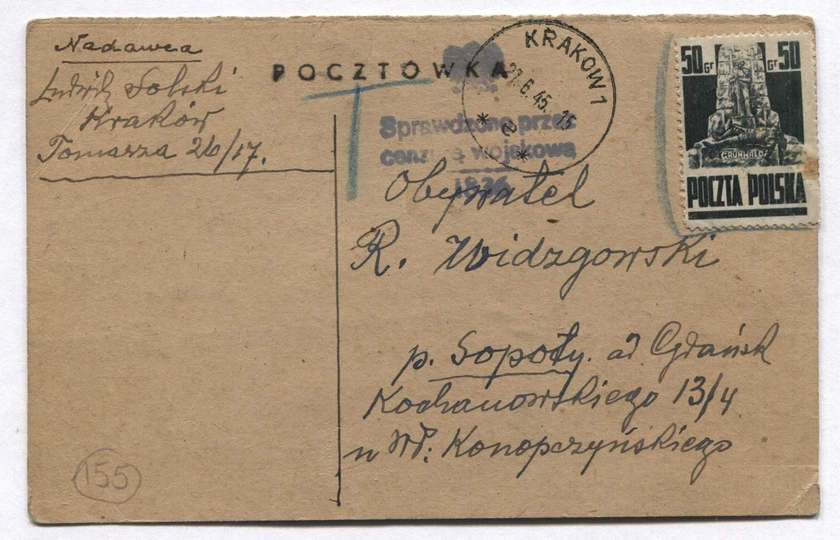 Nadawca
Ludwik Solski
Kraków
Tomasza 26/17.
POCZTÓWKA
KRAKOW 1
27.6.45.15
* e *
Sprawdzono przez
cenzurę wojskową
1824
50 Gr Gr 50
GRUNWALD
POCZTA POLSKA
Obywatel
R. Widzgowski
p. Sopoty. ad Gdańsk
Kochanowskiego 13/4
u WP. Konopczyńskiego
155